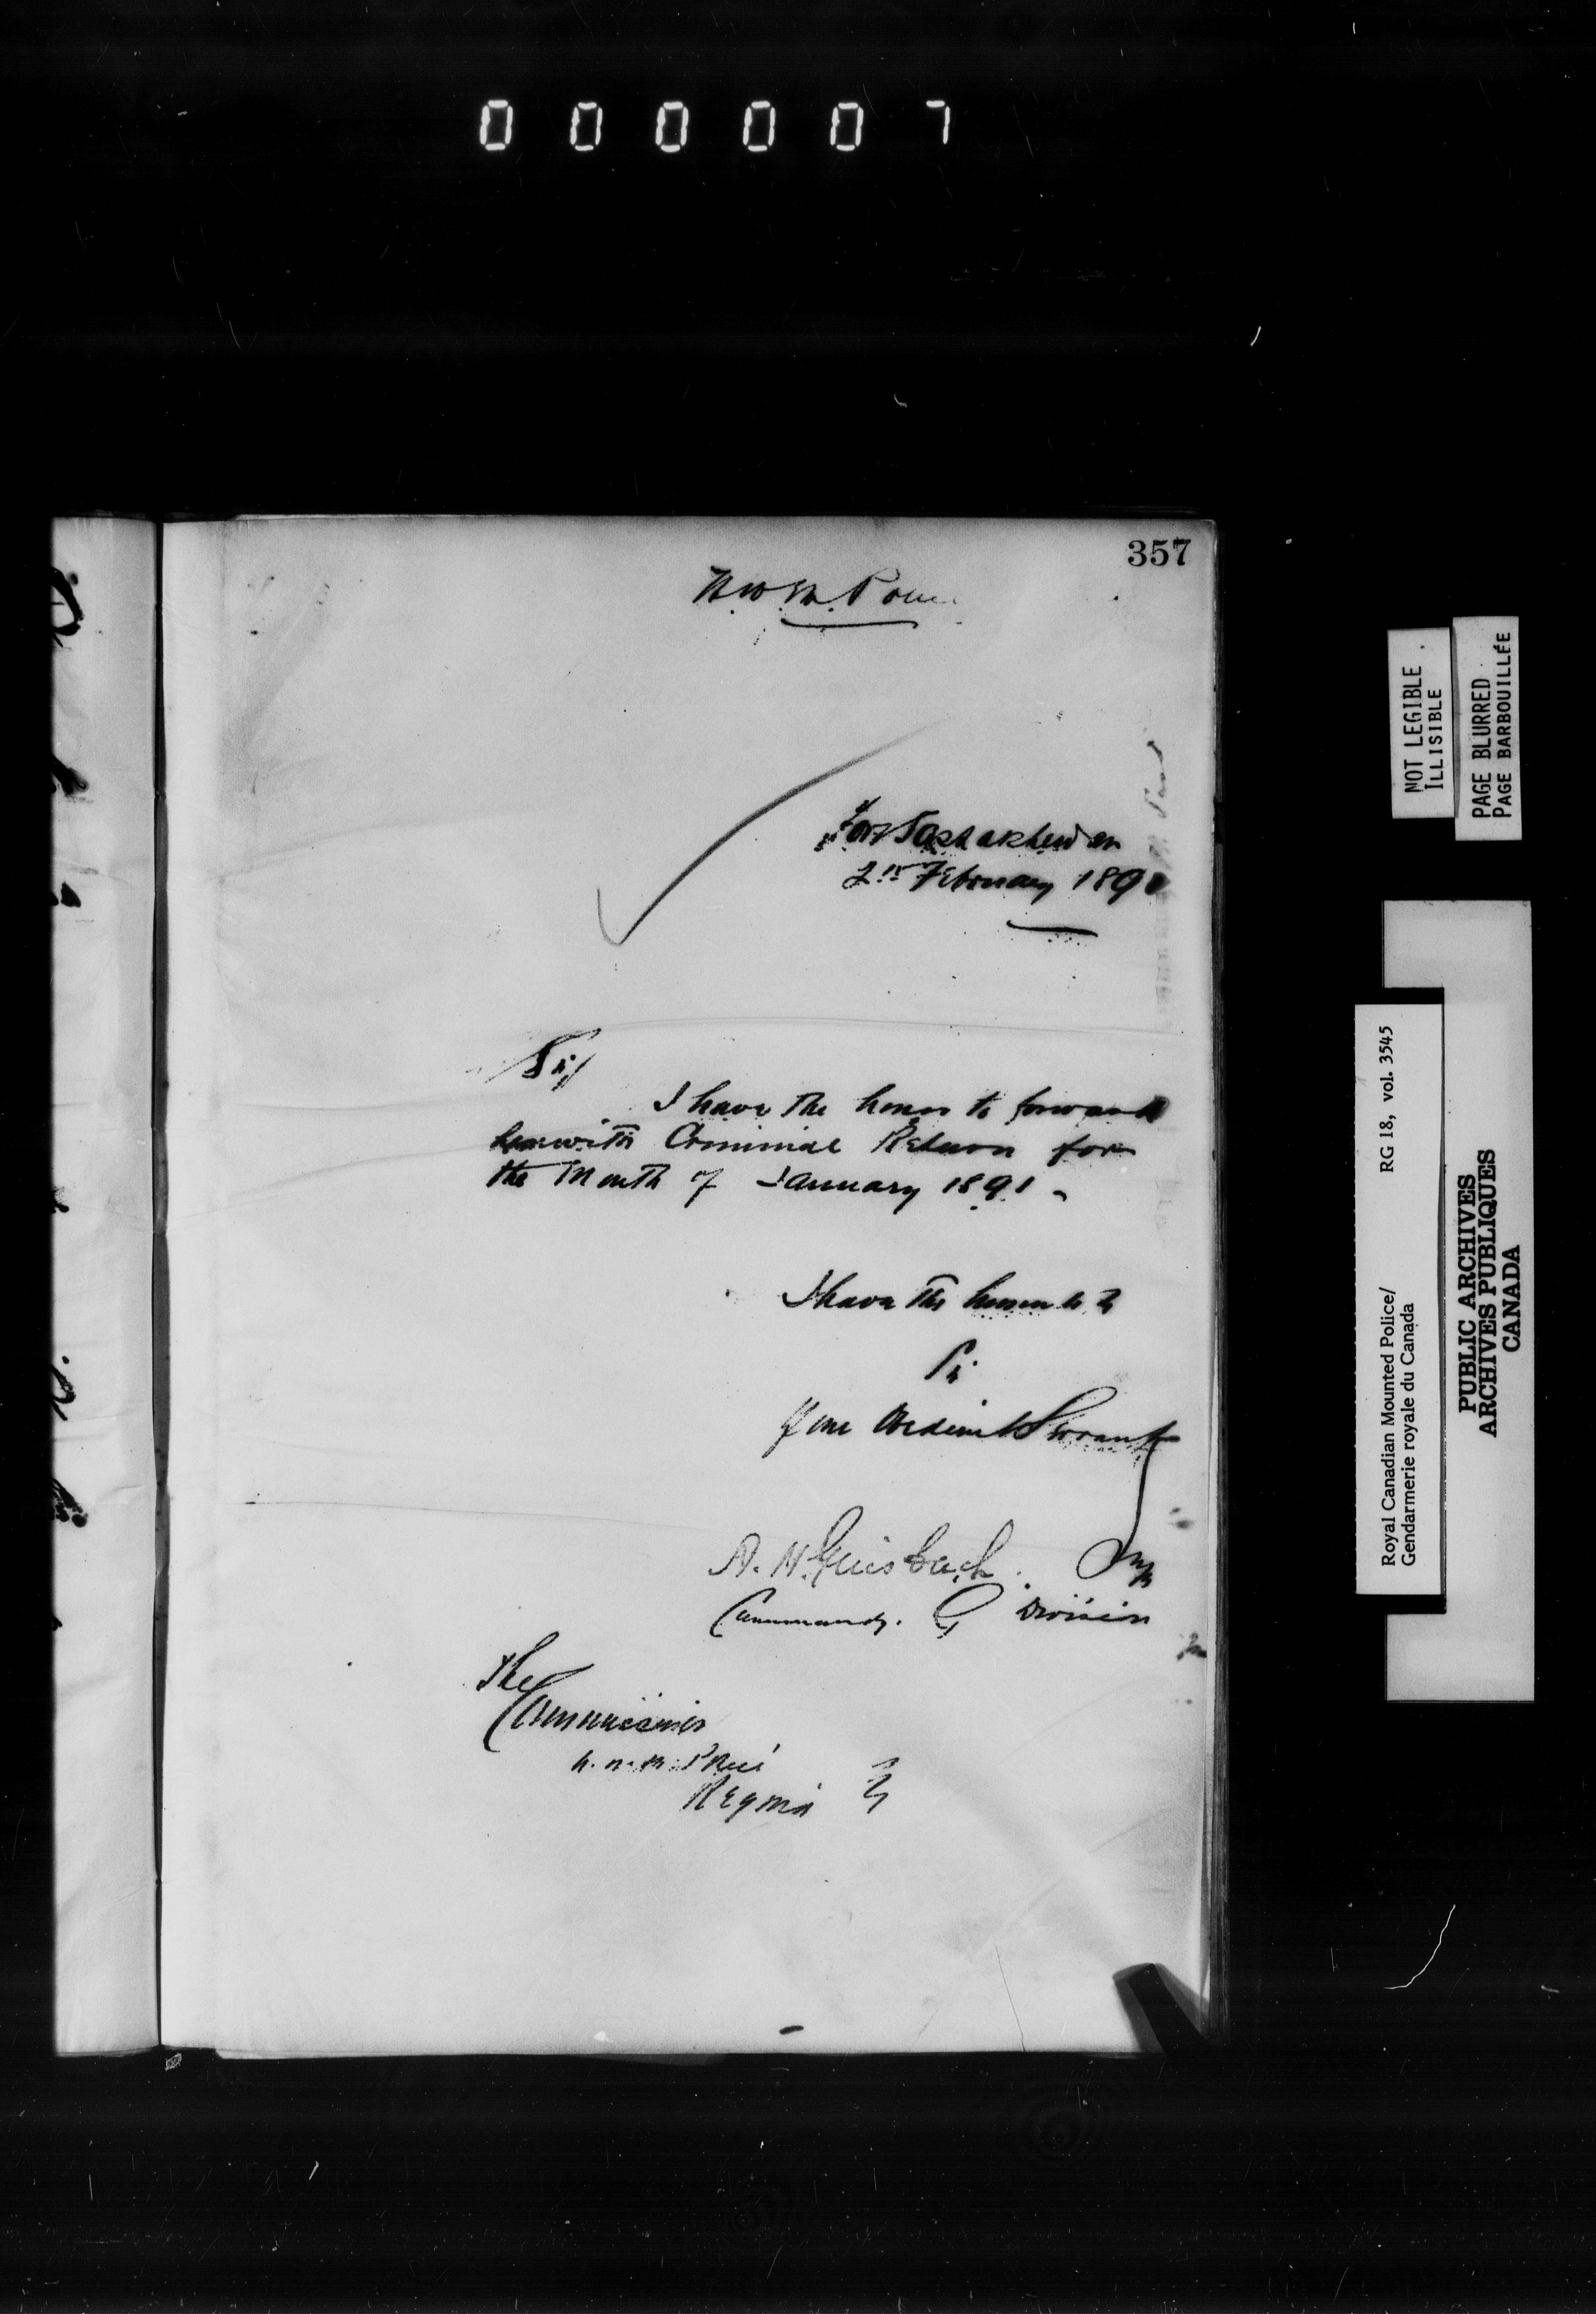 000007
357
N.W.M. Police
Fort Saskatchewan
2nd February 1891
Sir,
I have the honor to forward
herewith Criminal Return for
the Month of January 1891.
I have the honor to be
Sir
Your Obedient Servant
A. H. Griesbach. Supt
Commandg. G Division
The
Commissioner
N.W.M. Police
Regina
NOT LEGIBLE
ILLISIBLE
PAGE BLURRED
PAGE BARBOUILLÉE
Royal Canadian Mounted Police/ RG 18, vol. 3545
Gendarmerie royale du Canada
PUBLIC ARCHIVES
ARCHIVES PUBLIQUES
CANADA